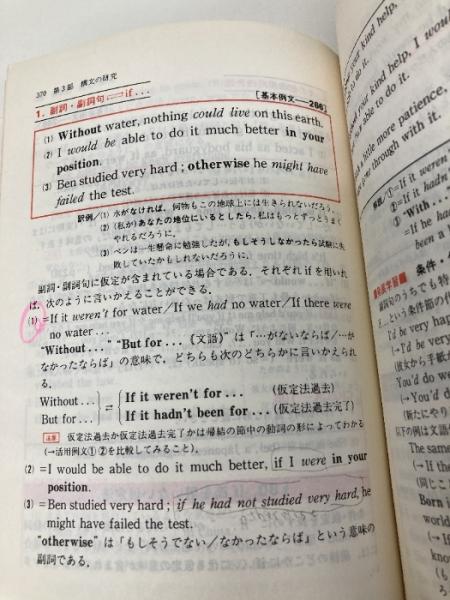 370 第3部 構文の研究
1. 副詞・副詞句⟺if...
[基本例文—286]
(1) Without water, nothing could live on this earth.
(2) I would be able to do it much better in your
position.
(3) Ben studied very hard; otherwise he might have
failed the test.
訳例／(1) 水がなければ, 何物もこの地球上には生きられないだろう.
(2) (私が)あなたの地位にいるとしたら, 私はもっとずっとうまく
やれるだろうに.
(3) ベンは一生懸命に勉強したが, もしそうしなかったら試験に失
敗していたかもしれないだろうに.
副詞・副詞句に仮定が含まれている場合である. それぞれ if を用いれ
ば, 次のように言いかえることができる.
(1) =If it weren't for water／If we had no water／If there were
no water...
"Without..." "But for...(文語)" は「...がないならば／...が
なかったならば」の意味で, どちらも次のどちらかに言いかえられ
る.
Without... But for... } = { If it weren't for... (仮定法過去)
If it hadn't been for... (仮定法過去完了)
注意 仮定法過去か仮定法過去完了かは帰結の節中の動詞の形によってわかる
(→活用例文①②を比較してみること).
(2) =I would be able to do it much better, if I were in your
position.
(3) =Ben studied very hard; if he had not studied very hard, he
might have failed the test.
"otherwise" は「もしそうでない／なかったならば」という意味の
副詞である.
your kind help,
your kind help, I would
able to do it.
a little more patience,
go through with it.
=If it weren't
=If it had
"With...
=If he had
been a
条件・
副詞句のうちでも特
...という条件節の作
I'd be very happ
(→I'd be very
(彼女から手紙が
You'd do we
(→You'd do
(新たにやり
以下の例は文語
The same
(→If the
(同じこ
Born i
world
(→If
know